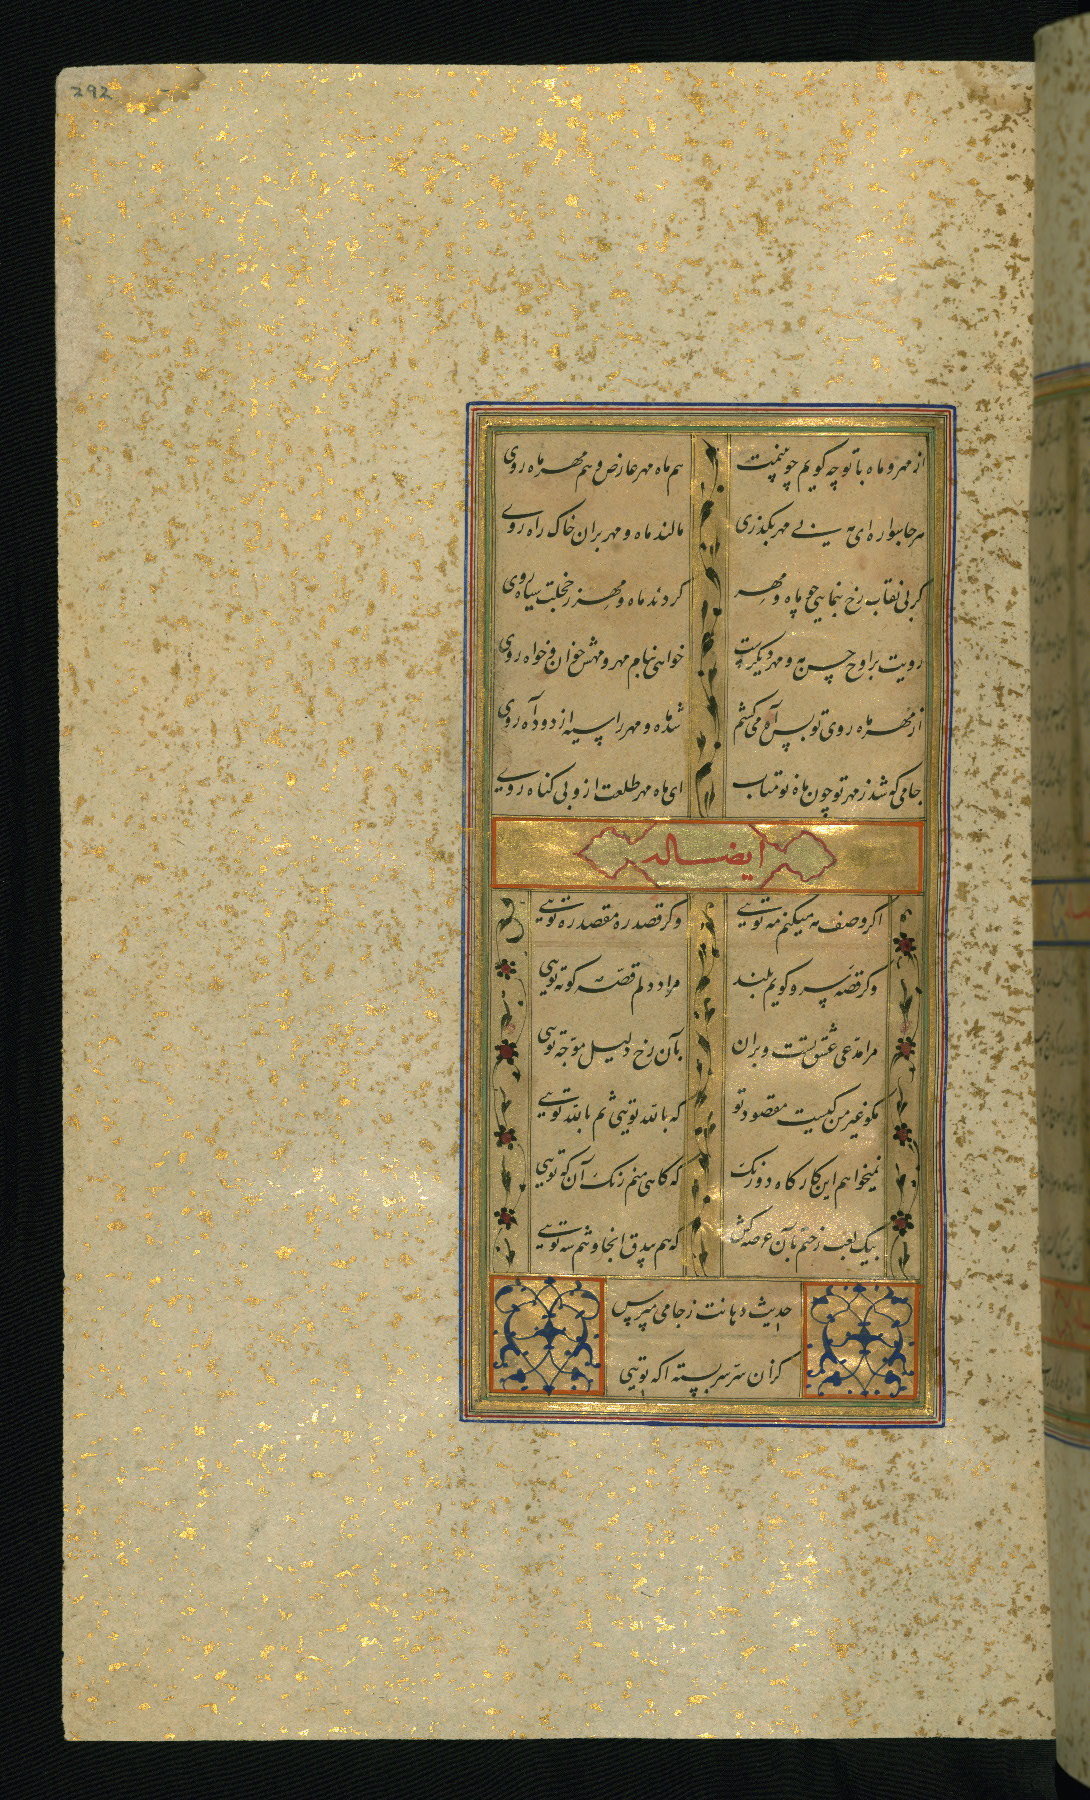 292
از مهر و ماه با تو چه گویم چو بینمت هم ماه مهر عارض و هم مهر ماه روی
هر جا سواره ای مه بی مهر بگذری مالند ماه و مهر بران خاک راه روی
کر بی نقاب رخ بنمایی چو ماه و مهر کردند ماه و مهر ز خجلت سیاه روی
رویت بر اوج حسن مه و مهر دیکرست خواهی بنام مهر و مهش خوان و خواه روی
از مهر ماه روی تو بس آه می کشم شد ماه و مهر را سیه از دود آه روی
جامی که شد ز مهر تو چون ماه نو متاب ای ماه مهر طلعت ازو بی کناه روی
ایضا له
اکر وصف مه میکنم مه تویی وکر قصد ره مقصد ره تویی
وکر قصه سرو کویم بلند مراد دلم قصه کوته تویی
مرا مدعی عشق تست و بران بآن رخ دلیل موجه تویی
مکو غیر من کیست مقصود تو که بالله تویی ثم بالله تویی
نمیخواهم این کارکاه دو رنک که کاهی منم رنک آن که تویی
بیک لعب رختم بآن عرصه کش که هم بیدق آنجا و هم شه تویی
حدیث دهانت ز جامی مپرس
کزان سر سربسته آکه تویی